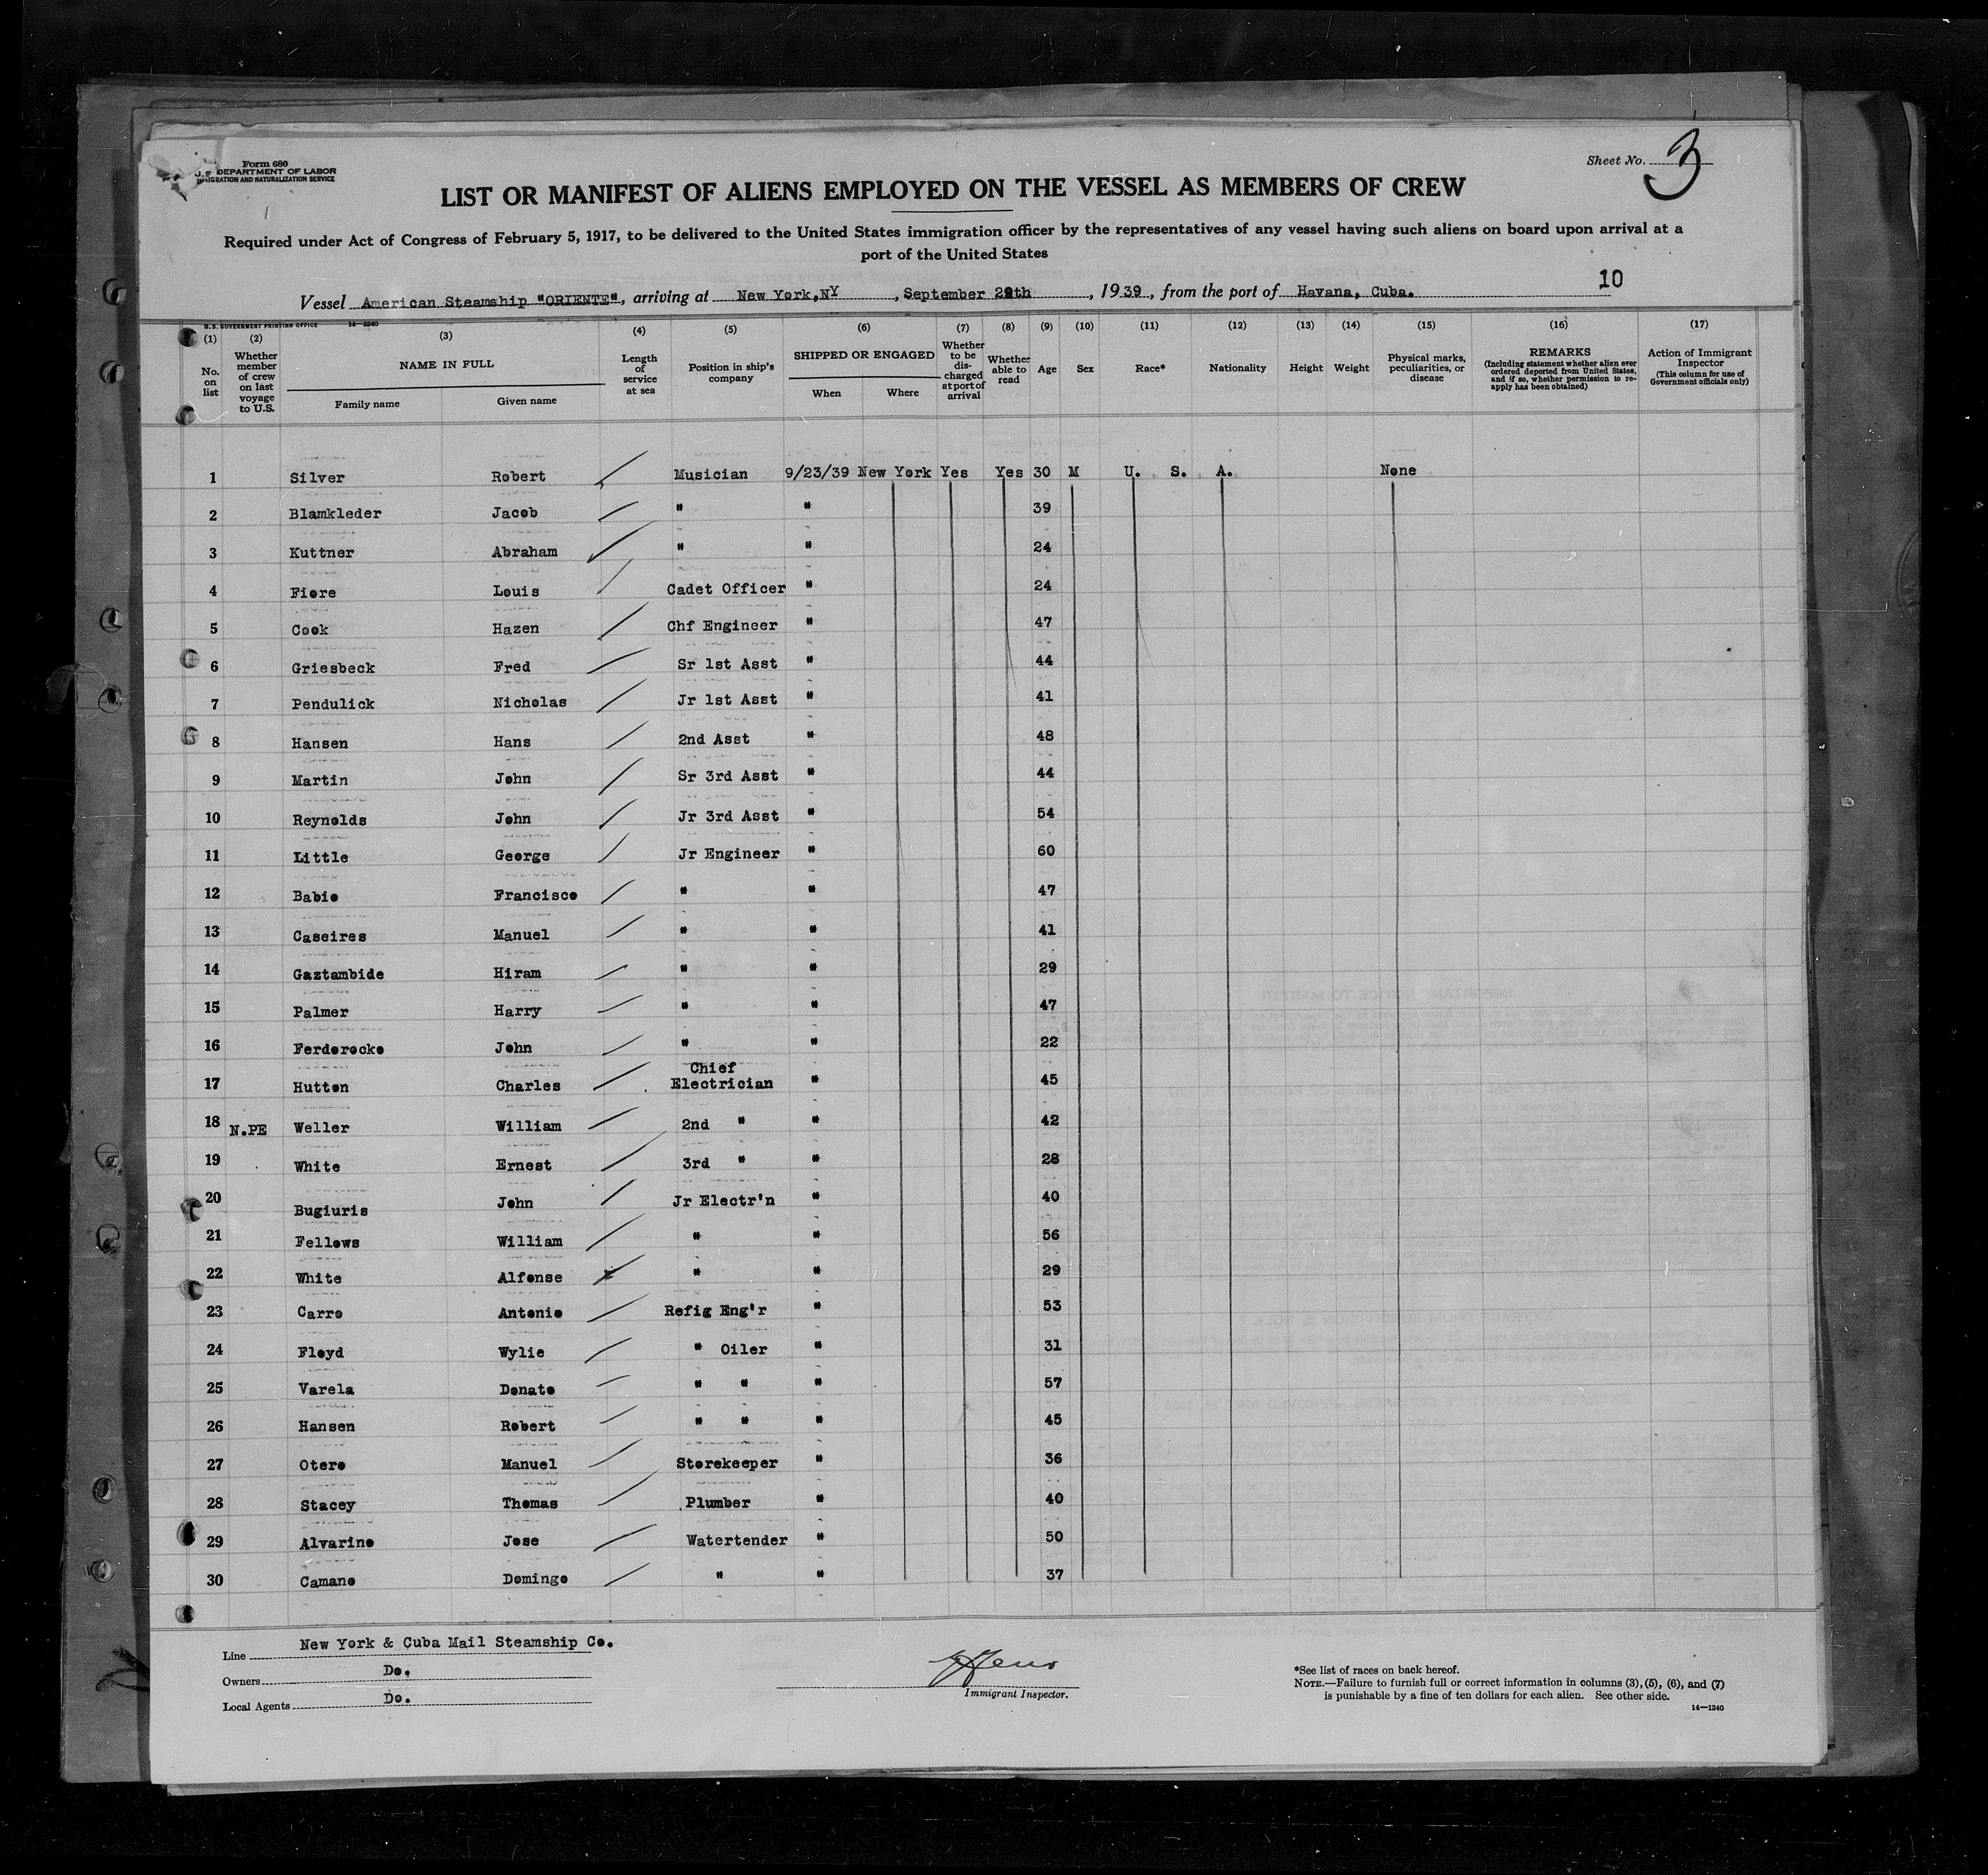 Form 680
U.S. DEPARTMENT OF LABOR
IMMIGRATION AND NATURALIZATION SERVICE
Sheet No. 3
LIST OR MANIFEST OF ALIENS EMPLOYED ON THE VESSEL AS MEMBERS OF CREW
Required under Act of Congress of February 5, 1917, to be delivered to the United States immigration officer by the representatives of any vessel having such aliens on board upon arrival at a
port of the United States
10
Vessel American Steamship "ORIENTE", arriving at New York,NY, September 29th, 1939, from the port of Havana, Cuba.
U.S. GOVERNMENT PRINTING OFFICE 14-1240
(1) (2) (3) (4) (5) (6) (7) (8) (9) (10) (11) (12) (13) (14) (15) (16) (17)
No. on list
Whether member of crew on last voyage to U.S.
NAME IN FULL
Family name Given name
Length of service at sea
Position in ship's company
SHIPPED OR ENGAGED
When Where
Whether to be discharged at port of arrival
Whether able to read
Age
Sex
Race*
Nationality
Height
Weight
Physical marks, peculiarities, or disease
REMARKS
(Including statement whether alien ever ordered deported from United States, and if so, whether permission to reapply has been obtained)
Action of Immigrant Inspector
(This column for use of Government officials only)
1 Silver Robert Musician 9/23/39 New York Yes Yes 30 M U. S. A. None
2 Blamkleder Jacob " " 39
3 Kuttner Abraham " " 24
4 Fiore Louis Cadet Officer " 24
5 Cook Hazen Chf Engineer " 47
6 Griesbeck Fred Sr 1st Asst " 44
7 Pendulick Nicholas Jr 1st Asst " 41
8 Hansen Hans 2nd Asst " 48
9 Martin John Sr 3rd Asst " 44
10 Reynolds John Jr 3rd Asst " 54
11 Little George Jr Engineer " 60
12 Babio Francisco " " 47
13 Caseires Manuel " " 41
14 Gaztambide Hiram " " 29
15 Palmer Harry " " 47
16 Ferderocko John " " 22
17 Hutton Charles Chief Electrician " 45
18 N.PE Weller William 2nd " " 42
19 White Ernest 3rd " " 28
20 Bugiuris John Jr Electr'n " 40
21 Fellows William " " 56
22 White Alfonse " " 29
23 Carro Antonio Refig Eng'r " 53
24 Floyd Wylie " Oiler " 31
25 Varela Donato " " " 57
26 Hansen Robert " " " 45
27 Otero Manuel Storekeeper " 36
28 Stacey Thomas Plumber " 40
29 Alvarino Jose Watertender " 50
30 Camano Domingo " " 37
Line New York & Cuba Mail Steamship Co.
Owners Do.
Local Agents Do.
Immigrant Inspector.
*See list of races on back hereof.
NOTE.—Failure to furnish full or correct information in columns (3), (5), (6), and (7)
is punishable by a fine of ten dollars for each alien. See other side.
14—1240